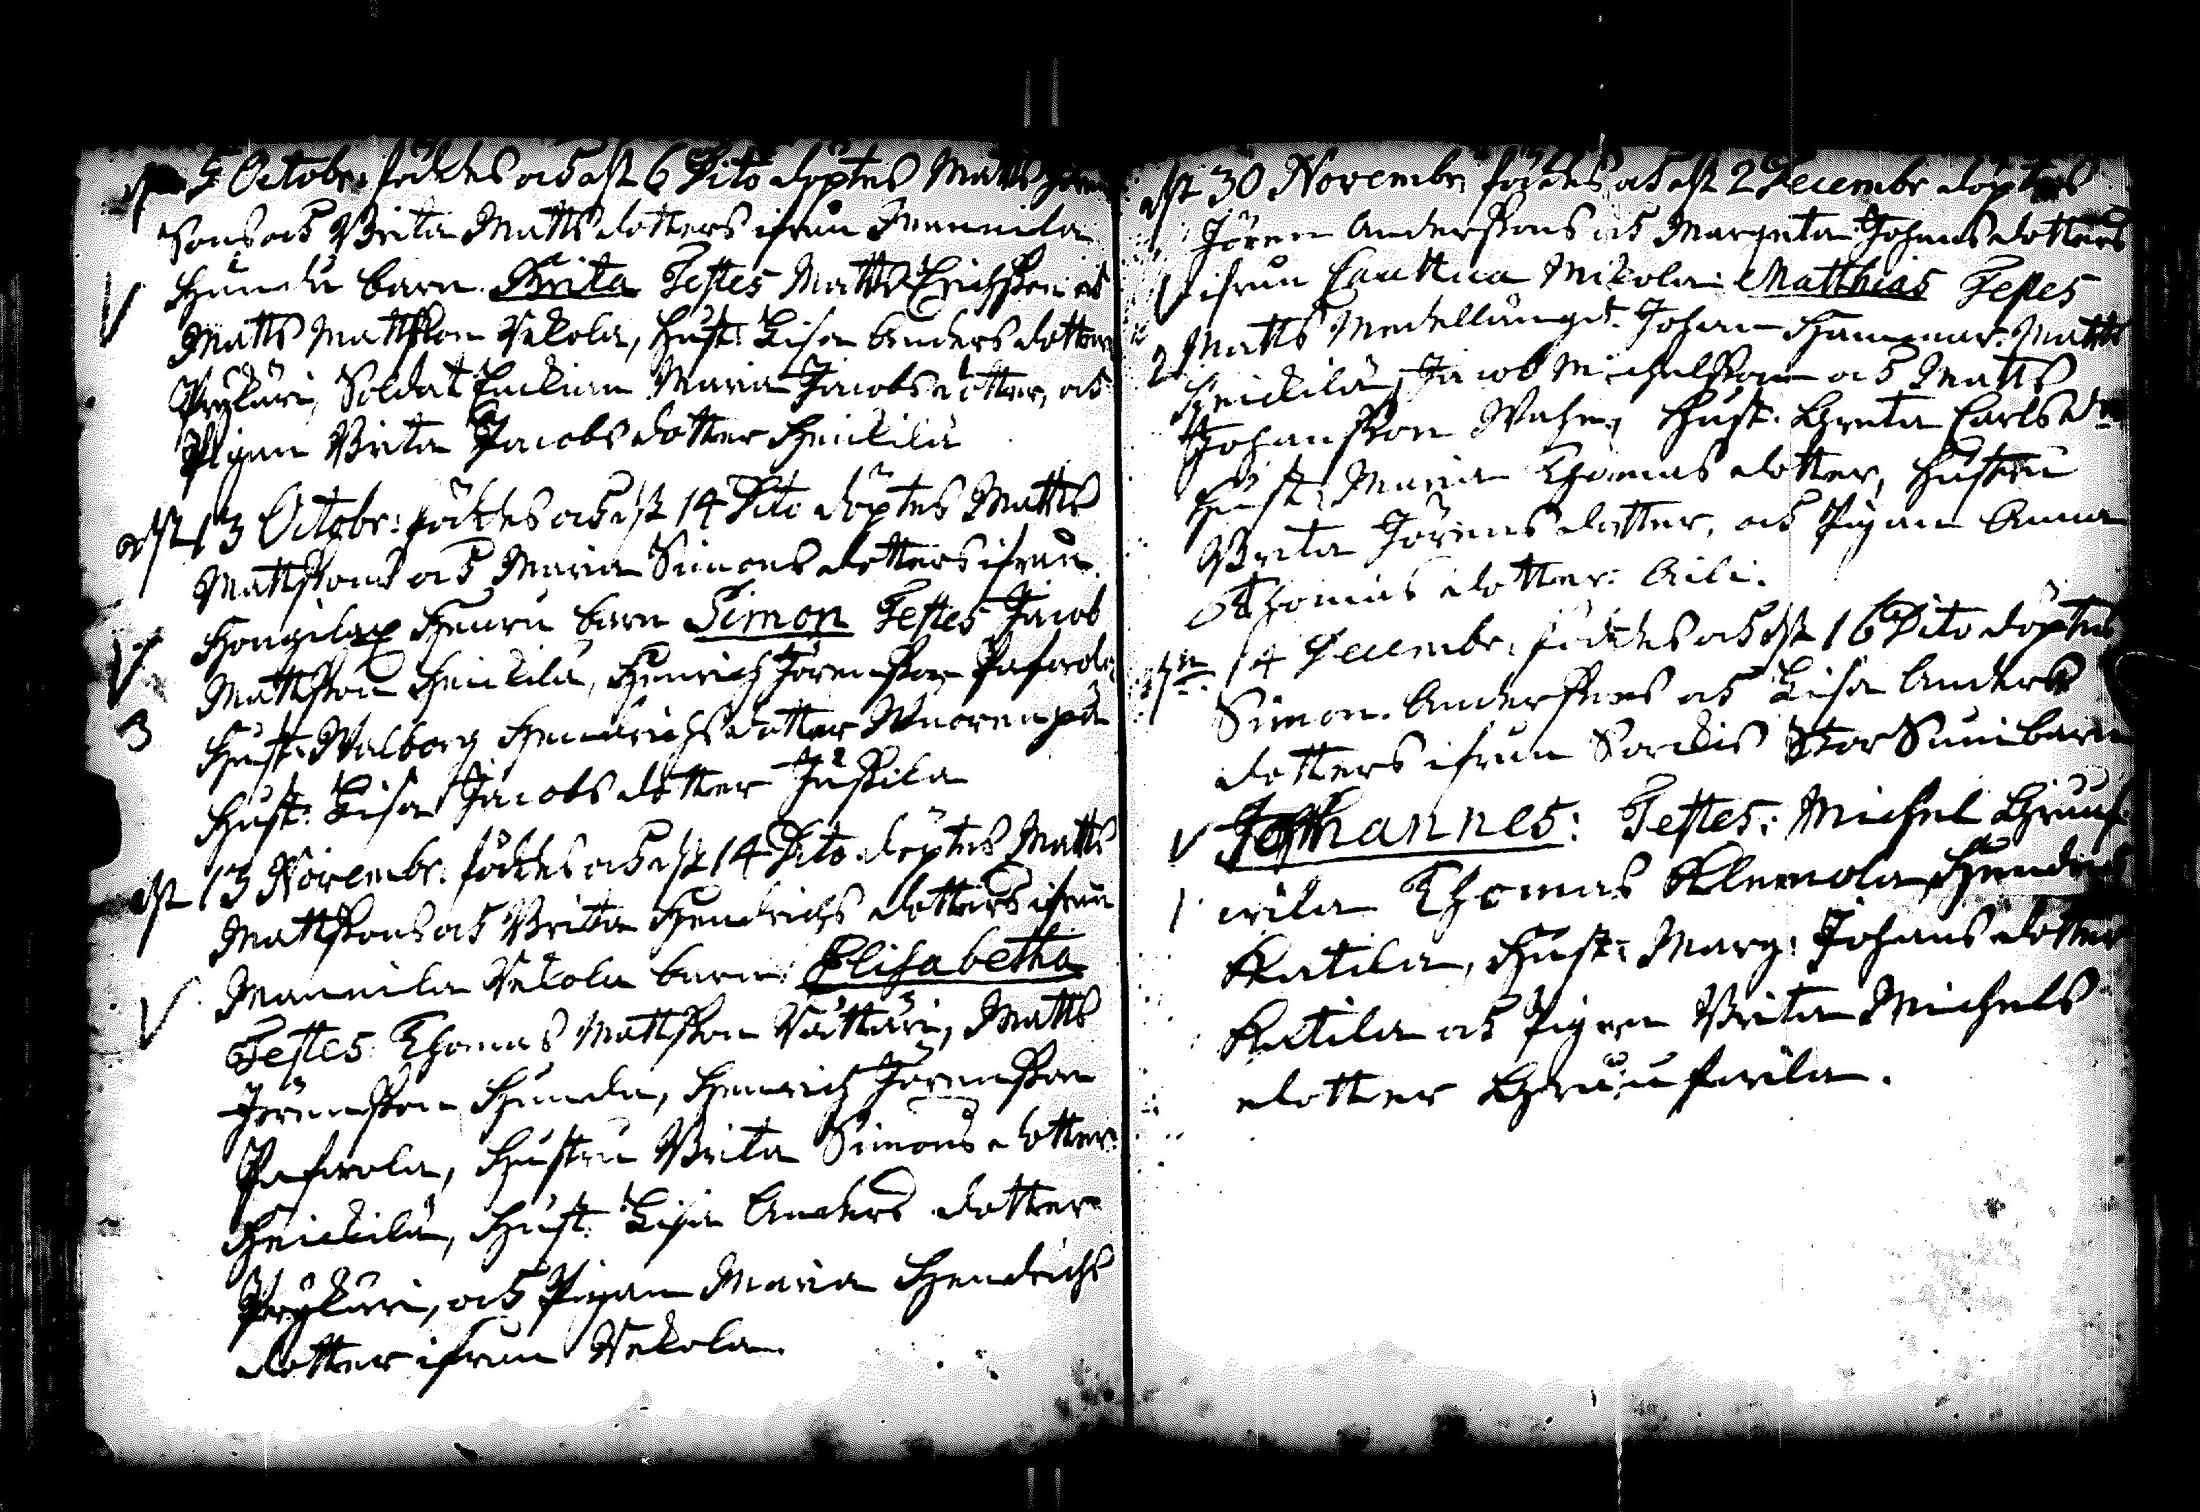 5 Octobr: föddes och d 6 Dito döptes Matts Jören
Sons och Brita Matts dotters ifrån Mannila
Hunda barn. Brita Testes Matts Erichsson och
Matts Mattsson Vekola, Hust: Lisa Anders dotter
Prykäri, Soldat Maria Jacobs dotter, och
Pigan Brita Jacobs dotter Heickilä
d 13 Octobr: föddes och d 14 Dito döptes Matts
Mattssons och Maria Simons dotters ifrån
Hongilax barn Simon Testes Jacob
Mattsson Heickilä, Henrich Jörensson Pafvola
3 Hust: Walborg Hendrichs dotter Wuorenpä
Hust: Lisa Jacobs dotter Jussila
d 13 Novembr: föddes och d 14 Dito döptes Matts
Mattssons och Brita Hendrichs dotters ifrån
Mannila Vekola barn: Elisabetha
Testes: Thomas Mattsson Vättäri, Matts
Jörensson Hunda, Henrich Jörensson
Pafvola, Hustru Brita Simons dotter
Heickilä, Hust: Lisa Anders dotter
Prykäri, och Pigan Maria Hendrichs
dotter ifrån Vekola
d 30 Novembr: föddes och d 2 Decembr döptes
Jören Anderssons och Margeta Johans dotters
ifrån Cauttua Mikola: Matthias Testes
2 Matts Johan Hammar. Matts
Heickilä, Jacob Michelsson och Matts
Johansson Hust: Greta Carls
Hust: Maria Thomas dotter, Hustru
Brita Jörens dotter, och Pigan Anna
Thomas dotter:
14 Decembr: föddes och d 16 Dito döptes
Simon Anderssons och Lisa Anders
dotters ifrån Sorckis Stor Suni barn
Johannes: Testes: Michel
1 Thomas Klemola
Katila, Hust: Marg: Johans dotter
Katila och Pigan Brita Michels
dotter